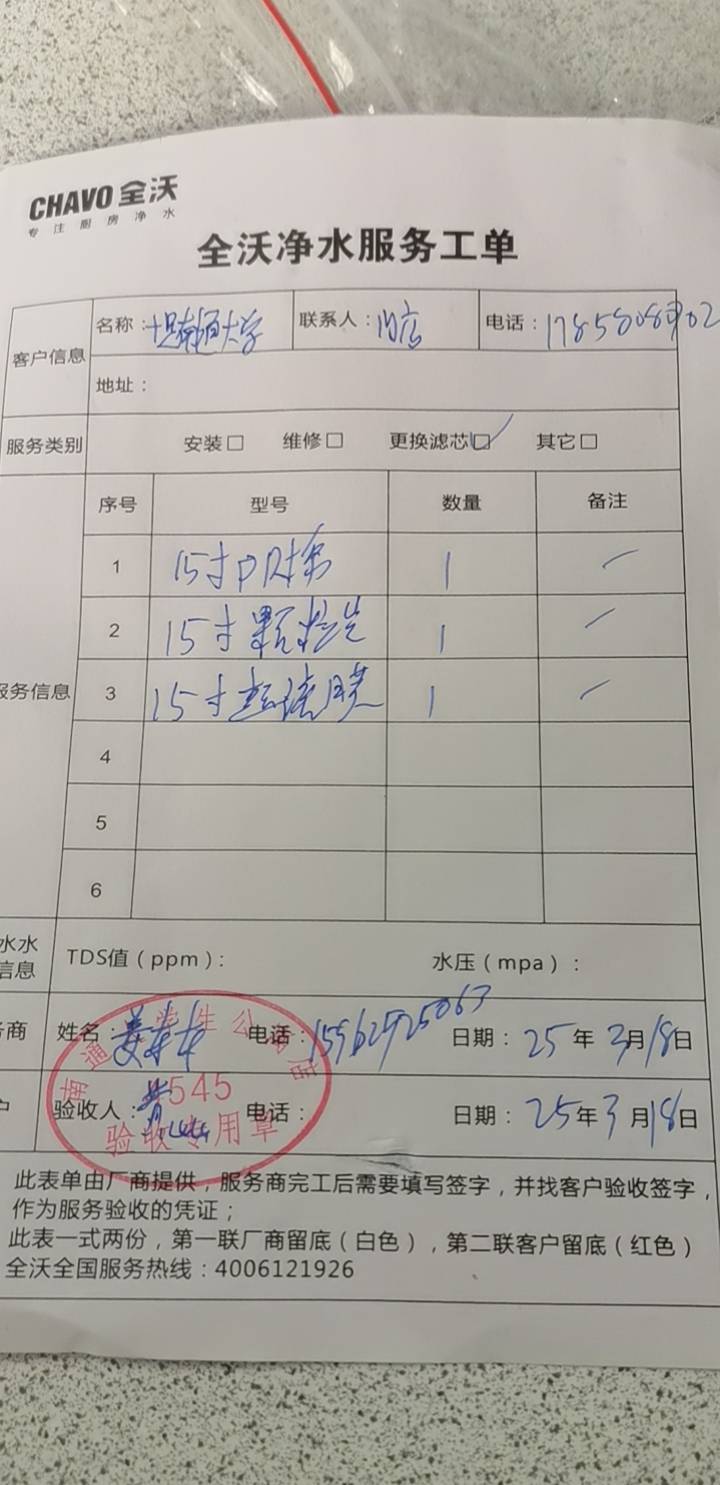 CHAVO 全沃
专注厨房净水
全沃净水服务工单
客户信息
名称：南通大学
联系人：门店
电话：
地址：
服务类别
安装□ 维修□ 更换滤芯□✓ 其它□
序号 型号 数量 备注
服务信息
1 15寸PP棉 1 —
2 15寸颗粒炭 1 —
3 15寸超滤膜 1 —
4
5
6
水水
信息
TDS值（ppm）： 水压（mpa）：
务商 姓名： 电话：15962925063 日期：25年3月18日
户 验收人： 电话： 日期：25年3月18日
4545
验收专用章
此表单由厂商提供，服务商完工后需要填写签字，并找客户验收签字，
作为服务验收的凭证；
此表一式两份，第一联厂商留底（白色），第二联客户留底（红色）
全沃全国服务热线：4006121926